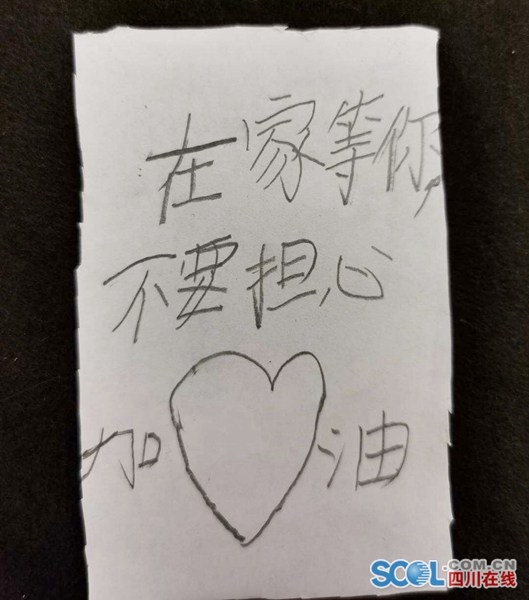 在家等你,
不要担心
加油
SCOL.COM.CN
四川在线